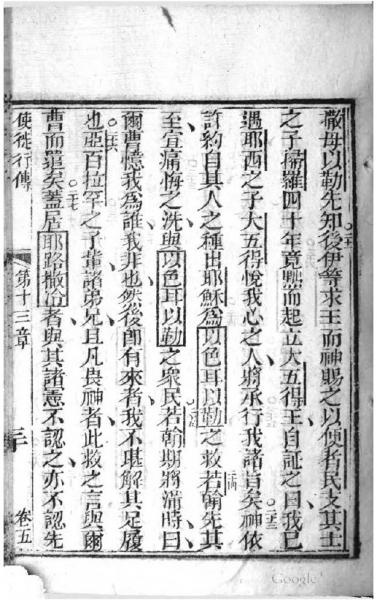 撒母以勒先知後伊等求王而神賜之以便者民支其士
之子掃羅四十年竟黜而起立大五得王自証之曰我已
遇耶西之子大五得悅我心之人將承行我諸旨矣神依
許約自其人之種出耶穌為以色耳以勒之救若翰先其
至宣痛悔之洗與以色耳以勒之眾民若翰期將滿時曰
爾曹憶我為誰我非也然後即有來者我不堪解其足履
也亞百拉罕之子輩諸弟兄且凡畏神者此救之言與爾
曹而遣矣蓋居耶路撒冷者與其諸憲不認之亦不認先
使徒行傳 第十三章 三 卷五
Google